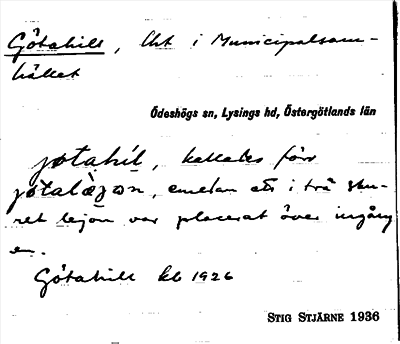 Götahill, Lht i Municipalsam-
hället
Ödeshögs sn, Lysings hd, Östergötlands län
jøtahil, kallades förr
jøtalejon, emedan ett i trä sku-
ret lejon var placerat över ingång
en.
Götahill kb 1926
STIG STJÄRNE 1936